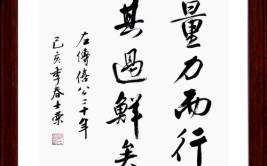 量力而行
其過鮮矣
左傳僖公二十年
己亥季春士荣